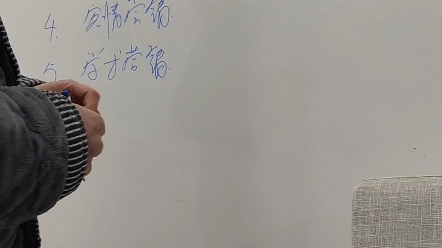 4. 客情营销.
5. 学术营销.